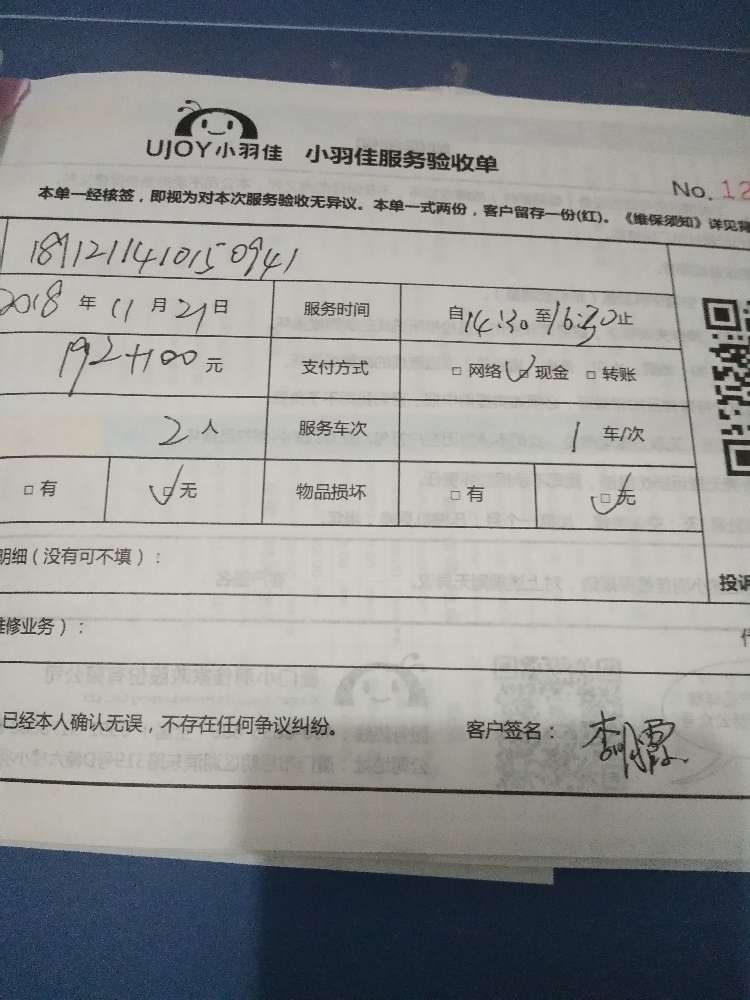 UJOY小羽佳 小羽佳服务验收单
No. 12
本单一经核签，即视为对本次服务验收无异议。本单一式两份，客户留存一份(红)。《维保须知》详见背
1891211410150941
2018 年 11 月 21 日 服务时间 自14:30至16:30止
192+100 元 支付方式 □网络 □现金 □转账
2 人 服务车次 1 车/次
□有 □无 物品损坏 □有 □无
明细（没有可不填）：
投诉
维修业务）：
已经本人确认无误，不存在任何争议纠纷。 客户签名：